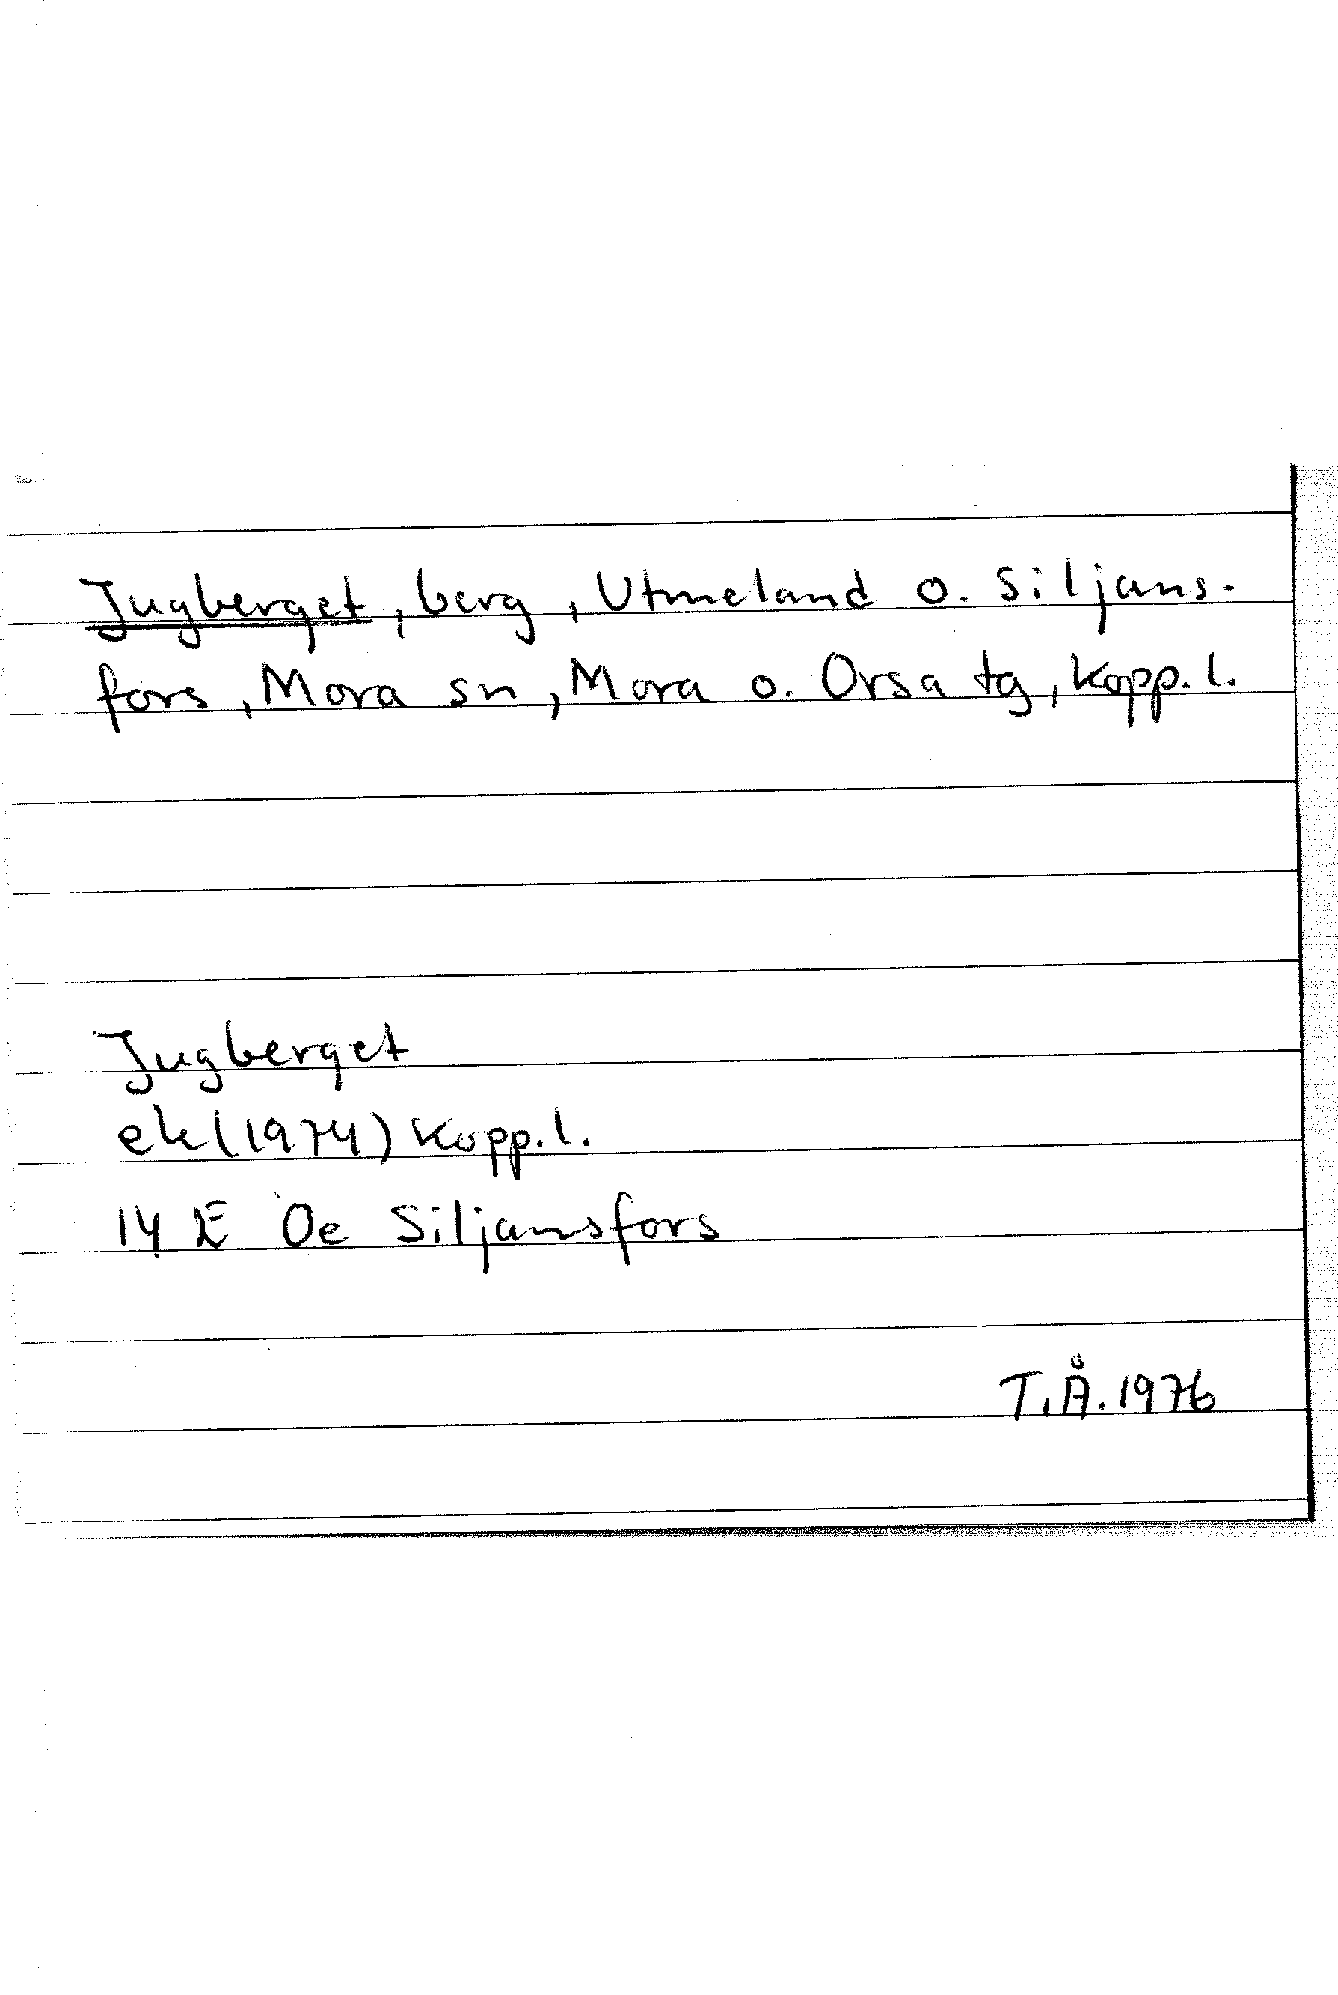 Jugberget, berg, Utmeland o. Siljans-
fors, Mora sn, Mora o. Orsa tg, Kopp. l.
Jugberget
ek (1974) Kopp. l.
14 E Oe Siljansfors
T.Å. 1976